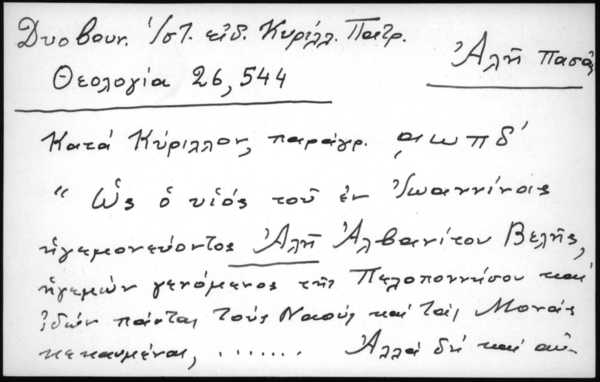 Δυοβουν. Ἱστ. εἰδ. Κυρίλλ. Πατρ.
Ἀλῆ Πασᾶς
Θεολογία 26, 544
Κατά Κύριλλον, παράγρ. ͵αωπδ'
"Ὡς ὁ υἱός τοῦ ἐν Ἰωαννίνοις
ἡγεμονεύοντος Ἀλῆ Ἀλβανίτου Βελῆς,
ἡγεμών γενόμενος τῆς Πελοποννήσου καί
ἰδών πάντας τούς Ναούς καί τάς Μονάς
κεκαυμένας, ....... Ἀλλά δή καί αὐ-